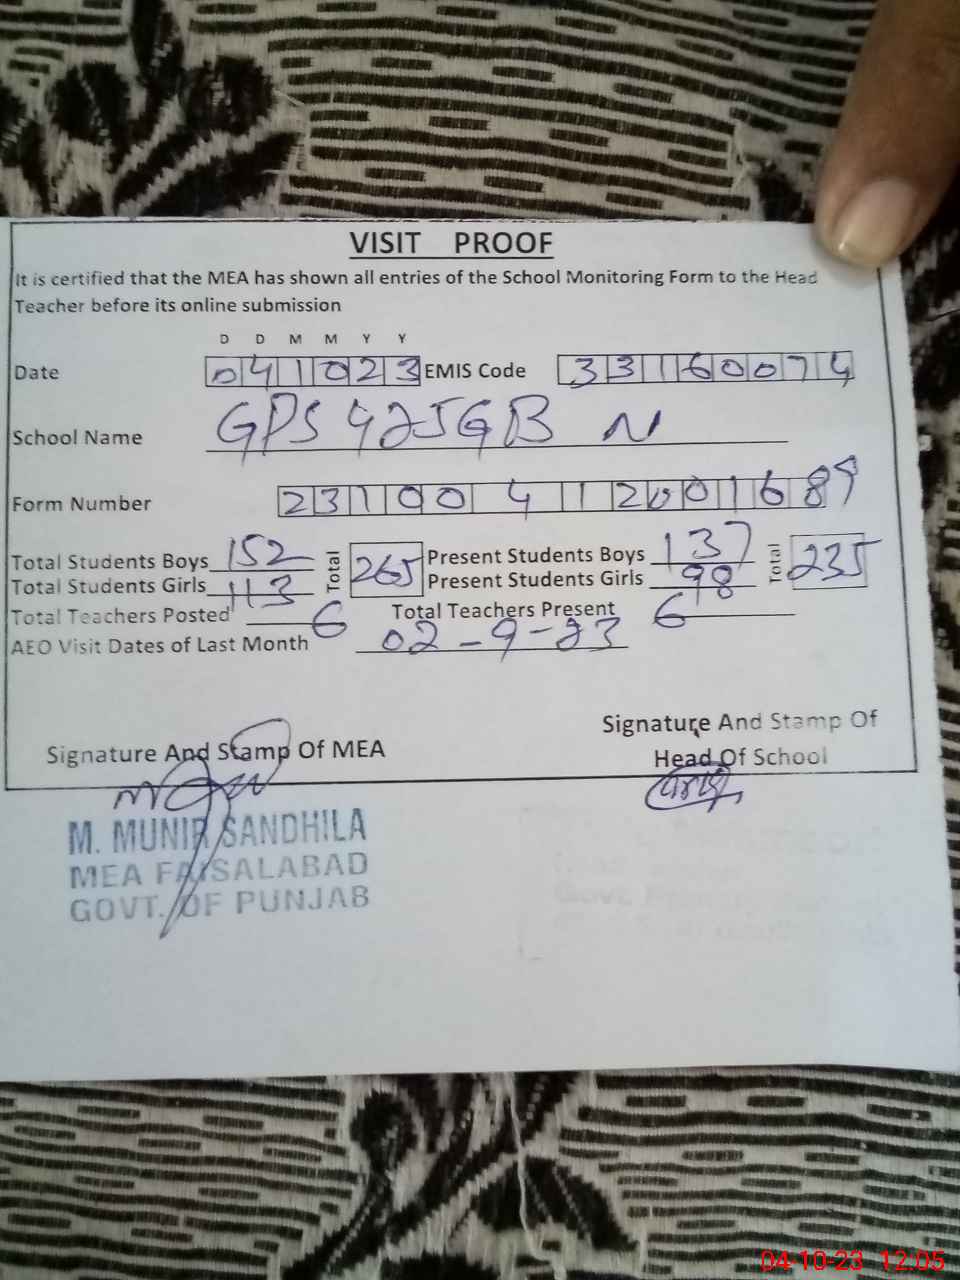 VISIT PROOF
It is certified that the MEA has shown all entries of the School Monitoring Form to the Head
Teacher before its online submission
D D M M Y Y
Date 041023 EMIS Code 33160074
School Name GPS 425GB N
Form Number 23100412001689
Total Students Boys 152 Total 265 Present Students Boys 137 Total 235
Total Students Girls 113 Present Students Girls 98
Total Teachers Posted 6 Total Teachers Present 6
AEO Visit Dates of Last Month 02-9-23
Signature And Stamp Of MEA
Signature And Stamp Of
Head Of School
M. MUNIR SANDHILA
MEA FAISALABAD
GOVT. OF PUNJAB
04-10-23 12:05